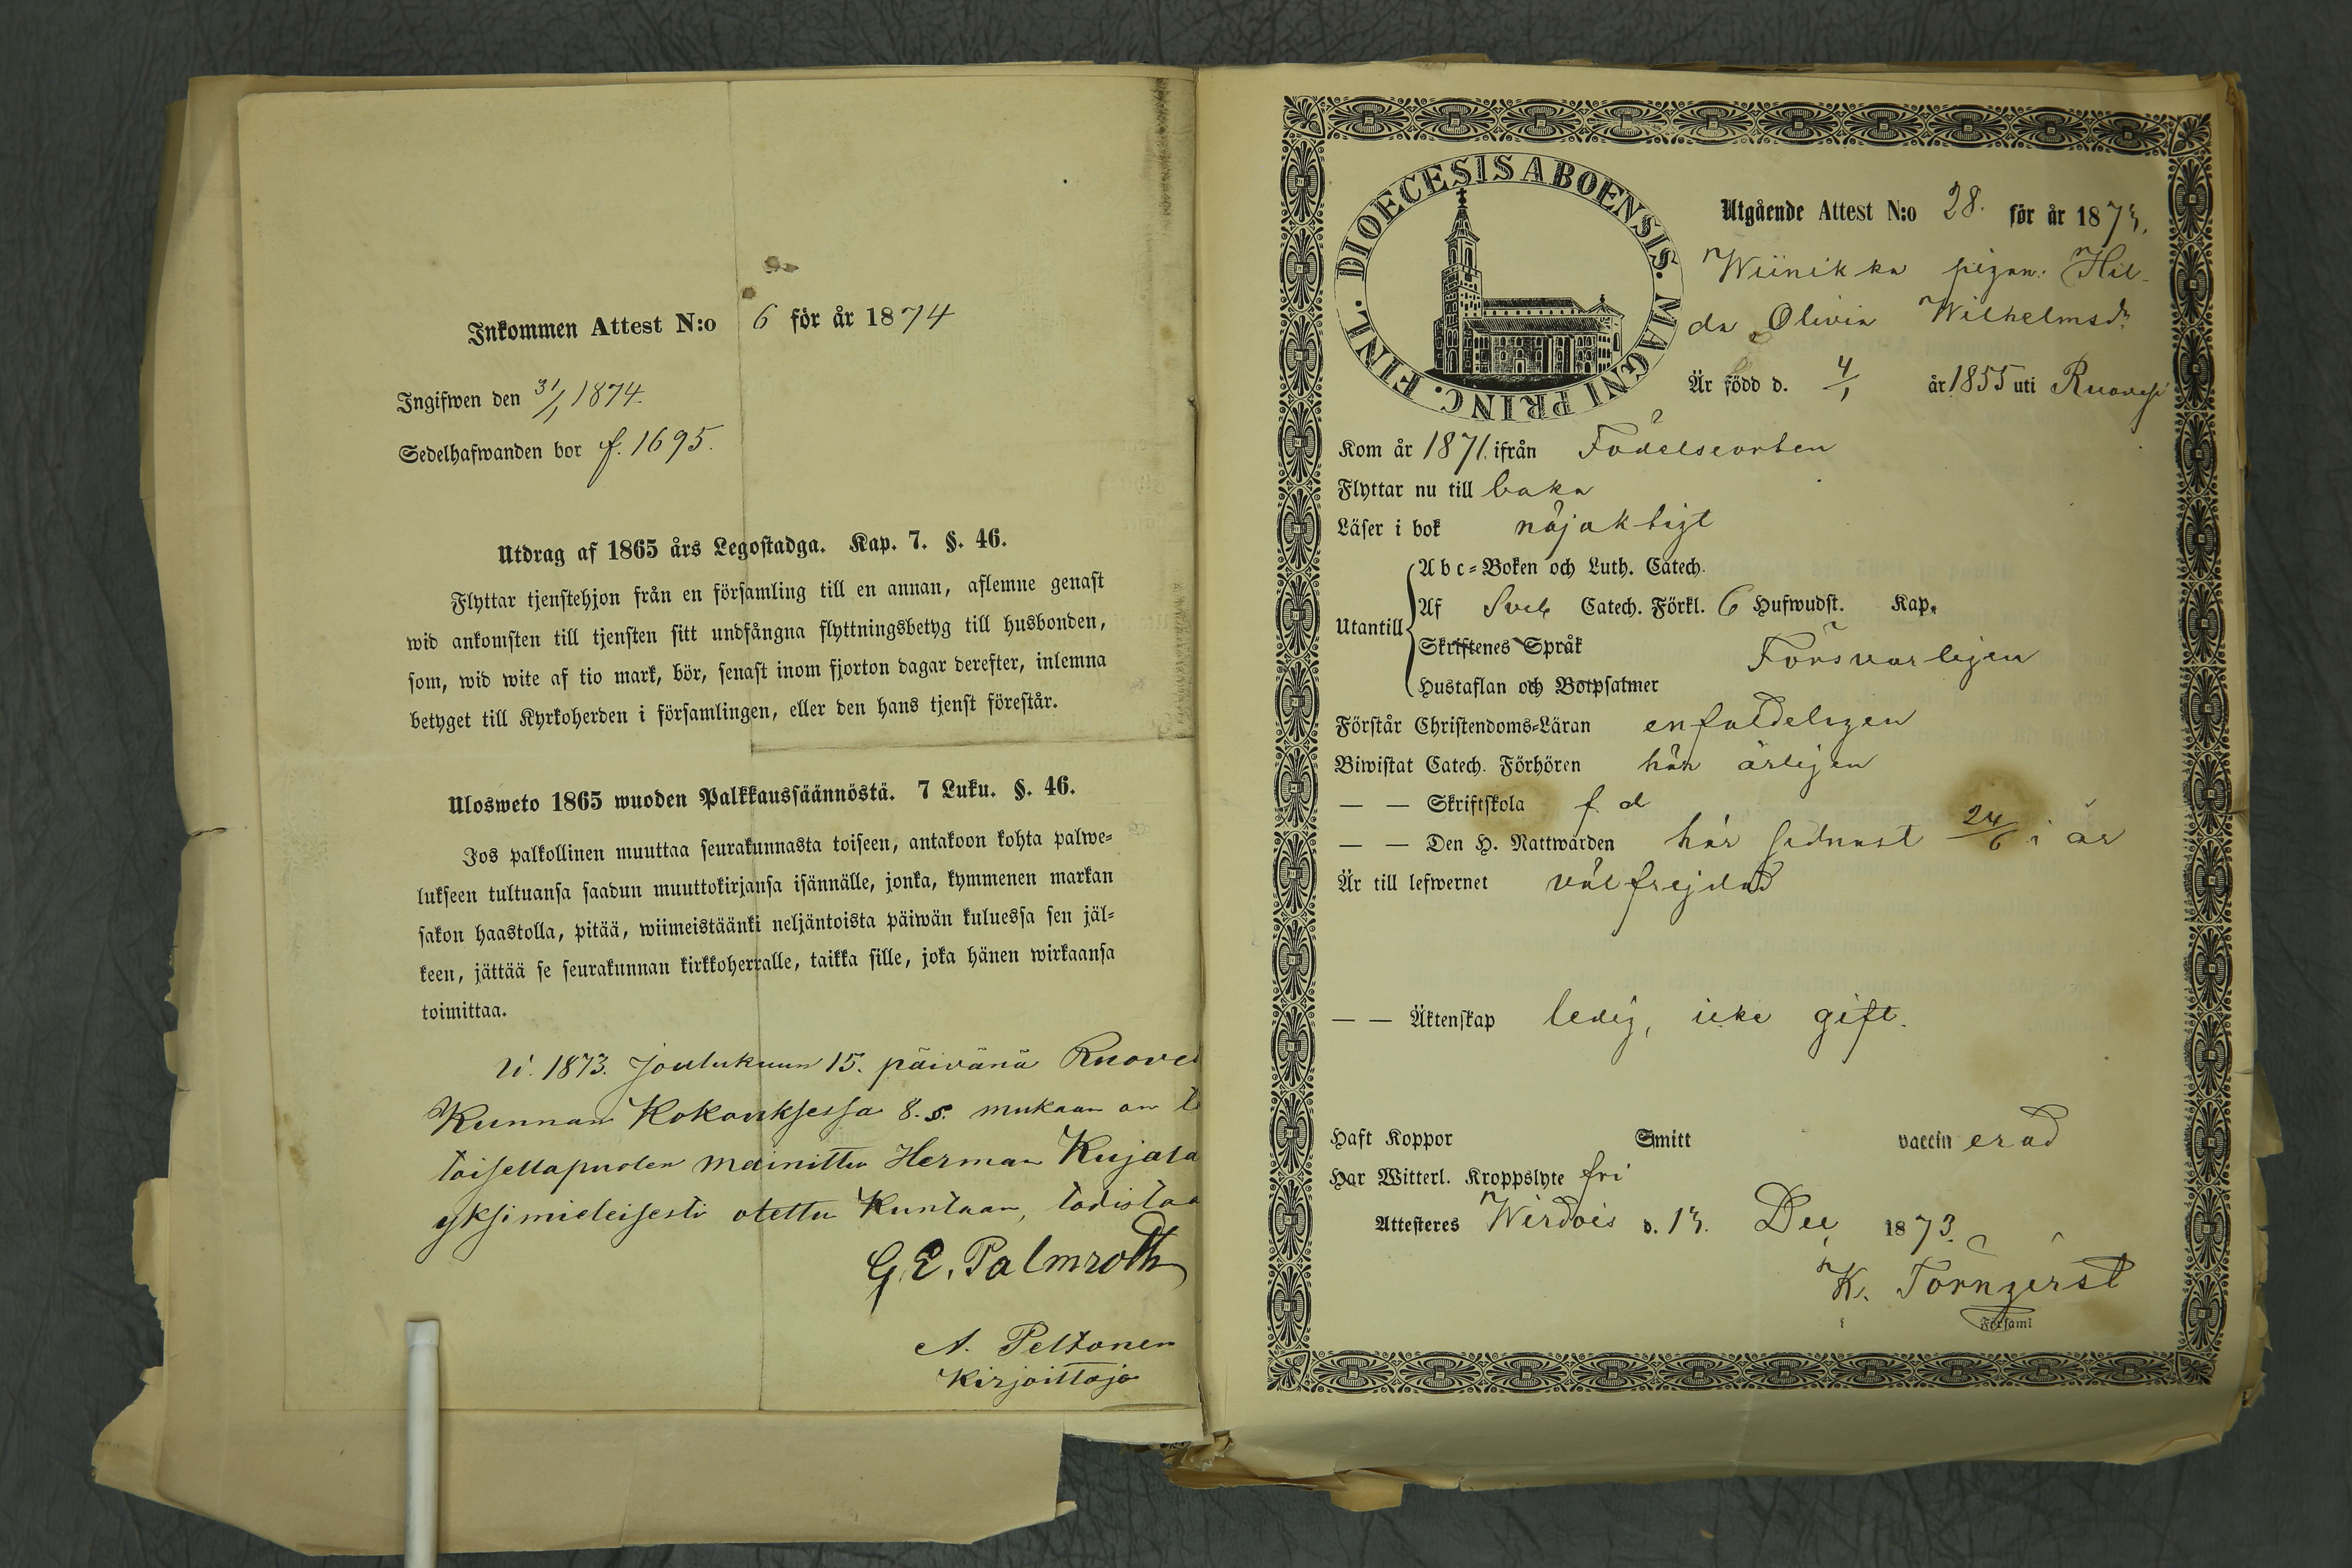 Inkommen Attest N:o 6 för år 1874
Ingifwen den 31/1 1874.
Sedelhafwanden bor f. 1695.
Utdrag af 1865 års Legostadga. Kap. 7. §. 46.
Flyttar tjenstehjon från en församling till en annan, aflemne genast
wid ankomsten till tjensten sitt undfångna flyttningsbetyg till husbonden,
som, wid wite af tio mark, bör, senast inom fjorton dagar derefter, inlemna
betyget till Kyrkoherden i församlingen, eller den hans tjenst förestår.
Ulosweto 1865 wuoden Palkkaussäännöstä. 7 Luku. §. 46.
Jos palkollinen muuttaa seurakunnasta toiseen, antakoon kohta palwe-
lukseen tultuansa saadun muuttokirjansa isännälle, jonka, kymmenen markan
sakon haastolla, pitää, wiimeistäänki neljäntoista päiwän kuluessa sen jäl-
keen, jättää se seurakunnan kirkkoherralle, taikka sille, joka hänen wirkaansa
toimittaa.
W. 1873. Joulukuun 15. päivänä Ruove
Kunnan Kokouksessa 8. s. mukaan on
toisellapuolen mainittu Herman Kujala
yksimielisesti otettu Kuntaan, todistaa
G. E. Palmroth
A. Peltonen
Kirjoittaja
DIOECESIS ABOENSIS. MAGNI PRINC. FINL.
Utgående Attest N:o 28. för år 1873.
Wiinikka pigan: Hil-
da Olivia Wilhelmsdr
Är född d. 4/1 år 1855 uti Ruovesi
Kom år 1871. ifrån Födelseorten
Flyttar nu till baka
Läser i bok nöjaktigt
Utantill
Abc-Boken och Luth. Catech.
Af Sveb Catech. Förkl. 6 Hufwudst. Kap.
Skriftenes Språk Försvarligen
Hustaflan och Botpsalmer
Förstår Christendoms-Läran enfaldeligen
Biwistat Catech. Förhören här årligen
— — Skriftskola f. d
— — Den H. Nattwarden här sednast 24/6 i år
Är till lefwernet välfrejdad
— — Äktenskap ledig, icke gift.
Haft Koppor Smitt vaccinerad
Har Witterl. Kroppslyte fri
Attesteras Wirdois d. 13. Dec 1873.
K. Törnqerst
i Församl